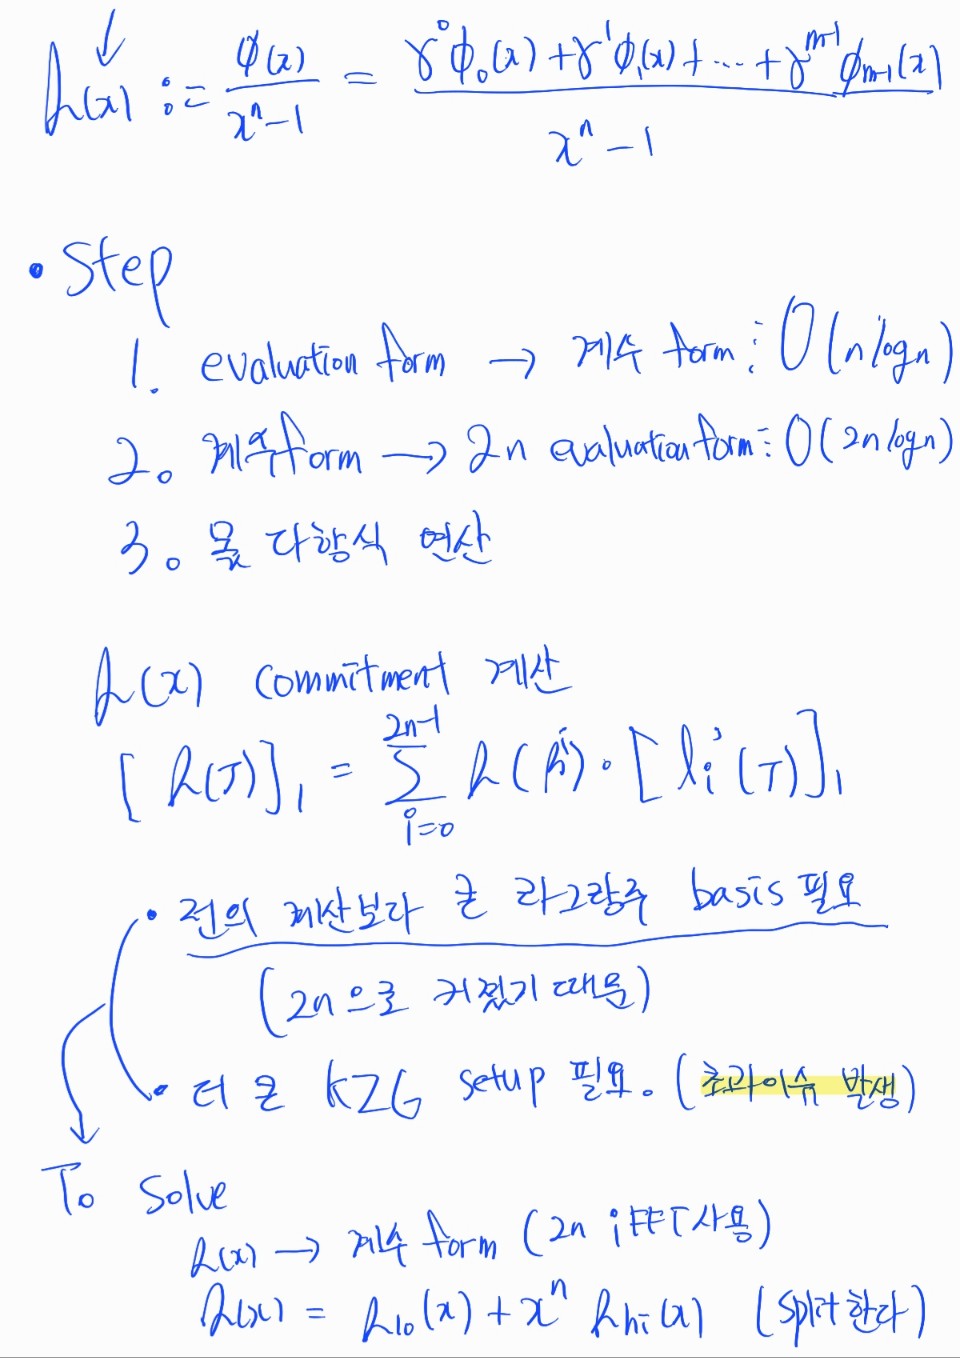 h(x) := φ(x) / x^n - 1 = γ^0 φ_0(x) + γ^1 φ_1(x) + ... + γ^{m-1} φ_{m-1}(x) / x^n - 1
• Step
1. evaluation form → 계수 form : O(n log n)
2. 계수 form → 2n evaluation form : O(2n log n)
3. 몫 다항식 연산
h(x) commitment 계산
[h(τ)]_1 = Σ_{i=0}^{2n-1} h(β^i) · [l_i'(τ)]_1
• 전의 계산보다 큰 라그랑주 basis 필요
(2n으로 커졌기 때문)
• 더 큰 KZG setup 필요. (초과이슈 발생)
To Solve
h(x) → 계수 form (2n iFFT 사용)
h(x) = h_lo(x) + x^n h_hi(x) (split 한다)